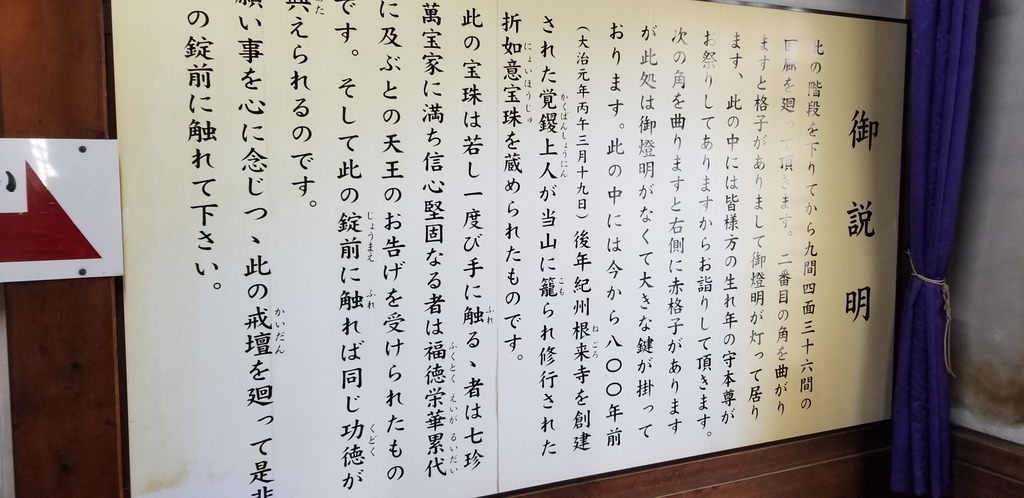 御説明
此の階段を下りてから九間四面三十六間の
回廊を廻って頂きます。二番目の角を曲がり
ますと格子がありまして御燈明が灯って居り
ます、此の中には皆様方の生れ年の守本尊が
お祭りしてありますからお詣りして頂きます。
次の角を曲りますと右側に赤格子があります
が此処は御燈明がなくて大きな鍵が掛って
おります。此の中には今から八〇〇年前
（大治元年丙午三月十九日）後年紀州根来寺を創建
された覚鑁上人が当山に籠られ修行された
折如意宝珠を蔵められたものです。
此の宝珠は若し一度び手に触る、者は七珍
萬宝家に満ち信心堅固なる者は福徳栄華累代
に及ぶとの天王のお告げを受けられたもの
です。そして此の錠前に触れば同じ功徳が
与えられるのです。
願い事を心に念じつ、此の戒壇を廻って是非
の錠前に触れて下さい。
い